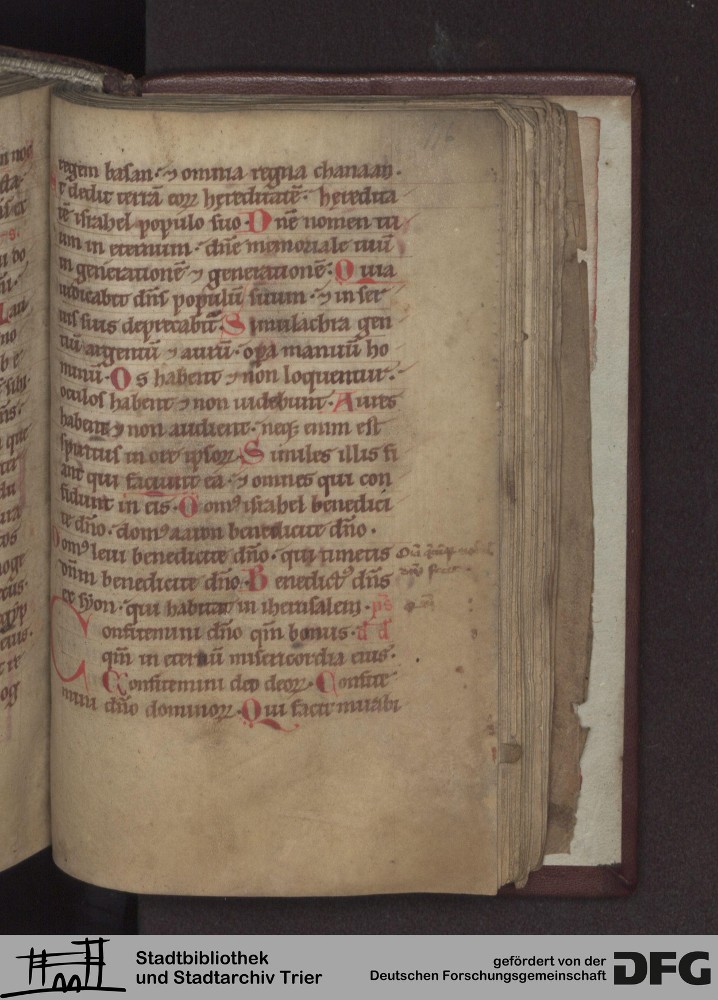 regem basan · ⁊ omnia regna chanaan ·
t dedit terrā eoꝝ hereditatē · heredita
tē israhel populo suo · Dnē nomen tu
um in eternum · dn̄e memoriale tuū
in generationē ⁊ generationē · Quia
iudicabit dn̄s populū suum · ⁊ in ser
uis suis deprecabit᷑ · Simulachra gen
tiū argentū ⁊ aurū · oꝑa manuū ho
minū · Os habent ⁊ non loquentur ·
oculos habent ⁊ non uidebunt · Aures
habent ⁊ non audient · neq; enim est
spiritus in ore ipsoꝝ · Similes illis fi
ant qui faciunt ea · ⁊ omnes qui con
fidunt in eis · Domꝰ israhel benedici
te dn̄o · domꝰ aaron benedicite dn̄o ·
Domꝰ leui benedicite dn̄o · qui timetis
dn̄m benedicite dn̄o · Benedictꝰ dn̄s
ex syon · qui habitat in iherusalem · ps̄
Confitemini dn̄o qm̄ bonus · d d
qm̄ in eternū misericordia eius ·
Confitemini deo deoꝝ · Confite
mini dn̄o dominoꝝ · Qui facit mirabi
Stadtbibliothek
und Stadtarchiv Trier
gefördert von der
Deutschen Forschungsgemeinschaft
DFG